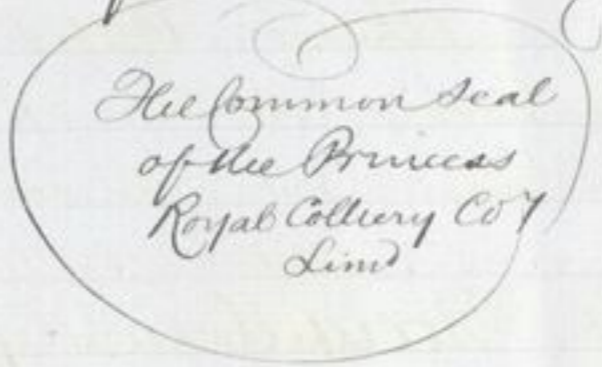 The Common Seal
of the Princess
Royal Colliery Coy
Limd